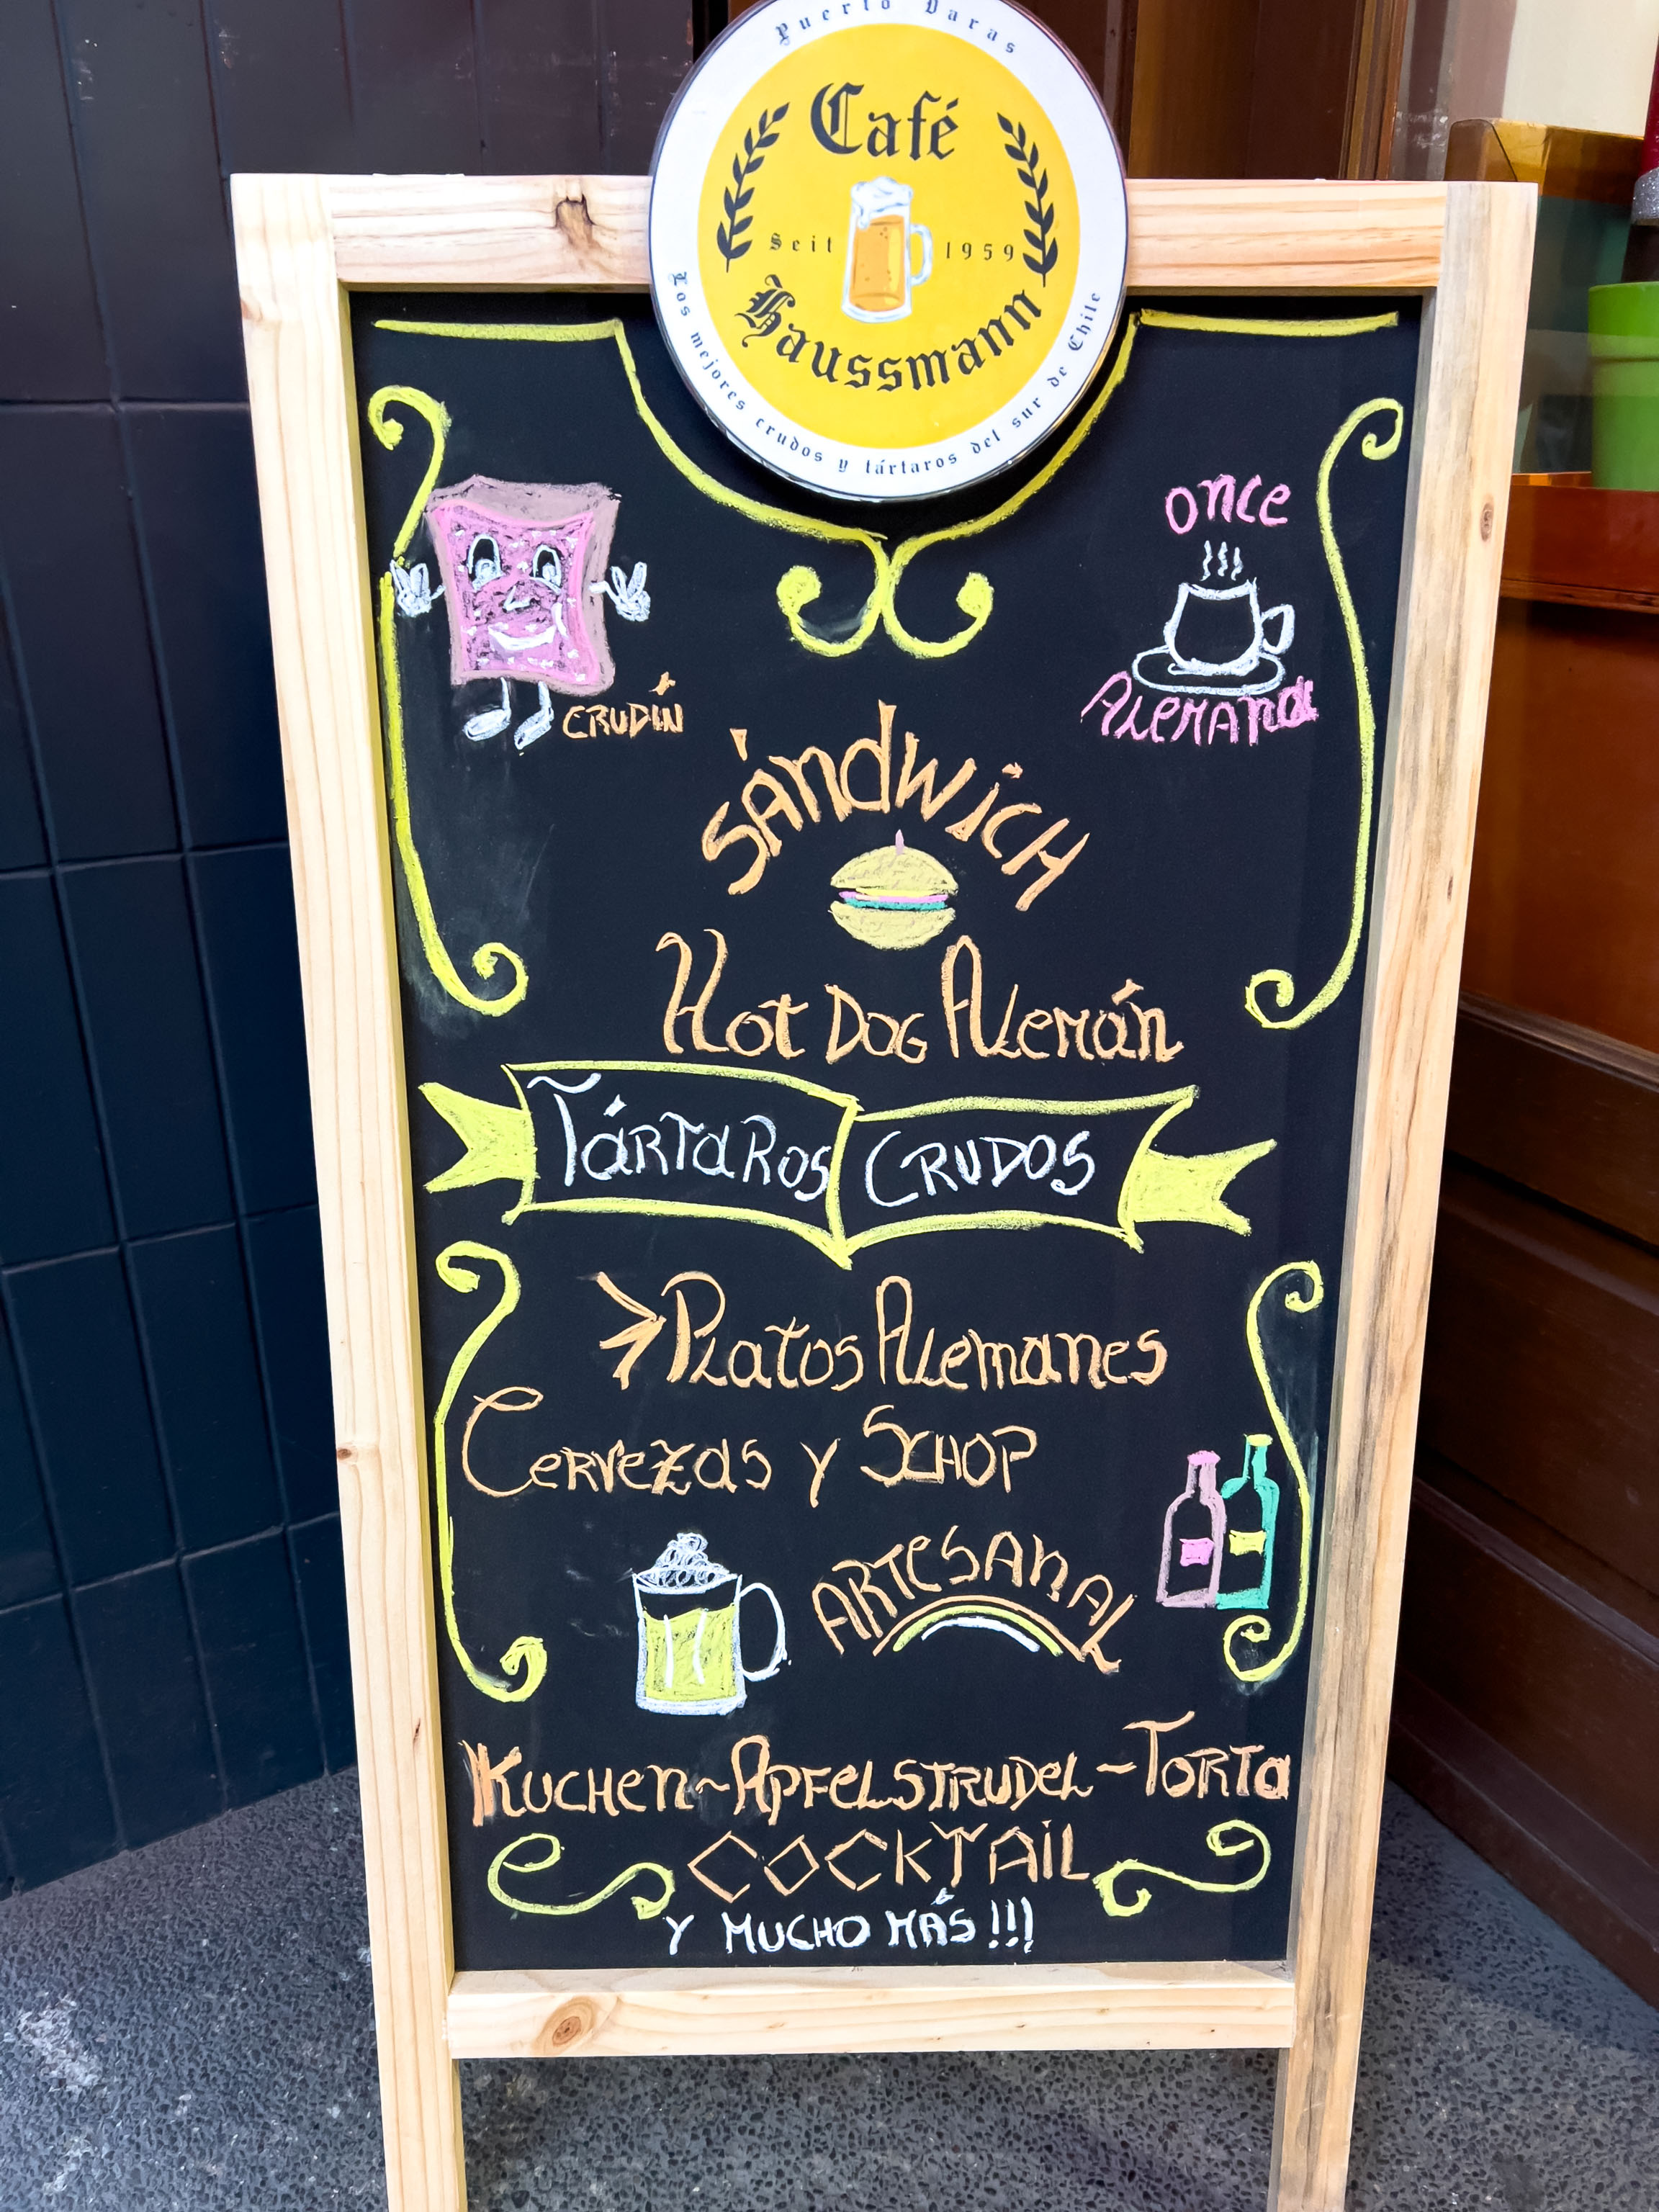 Puerto Varas
Café
Seit 1959
Haussmann
Los mejores crudos y tártaros del sur de Chile
once
Alemana
CRUDÍN
SÁndwicH
Hot Dog Alemán
TÁRTaRos CRUDOS
>Platos Alemanes
Cervezas y SCHOP
ARTeSAnAL
KUCHEn~APFeLSTRUDeL~TORTa
COCKTAiL
Y MUCHO MÁS!!!